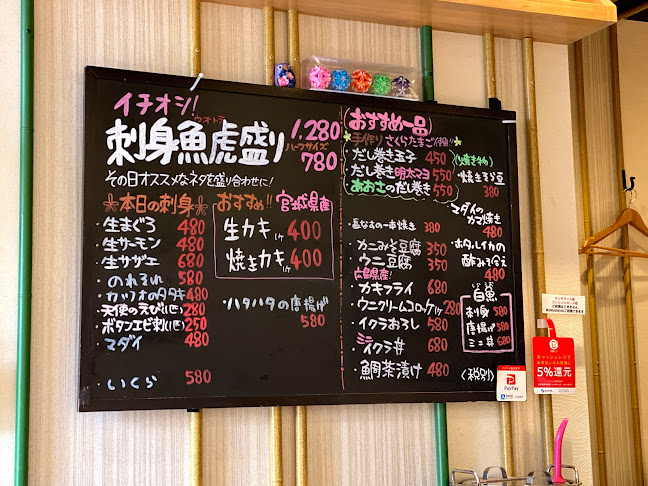 イチオシ!
ウオトラ
刺身魚虎盛り 1,280
ハーフサイズ 780
その日オススメなネタを盛り合わせに!
本日の刺身
・生まぐろ 480
・生サーモン 480
・生サザエ 680
・のれそれ 580
・カツオのタタキ 480
・天使のえび(1匹) 280
・ボタンエビ刺(1匹) 250
・マダイ 480
・いくら 580
おすすめ!! 宮城県産
生カキ 1ケ 400
焼きカキ 1ケ 400
・ハタハタの唐揚げ
580
おすすめ一品
手作り さくらたまご使用!!
・だし巻き玉子 450
・だし巻き明太マヨ 550
・あおさのだし巻き 550
・長なすの一本焼き 380
・カニみそ豆腐 350
・ウニ豆腐 350
広島県産!
・カキフライ 680
・ウニクリームコロッケ 1ケ 280
・イクラおろし 580
・ミニイクラ丼 680
・鯛茶漬け 480
〈焼き物〉
・焼きそら豆
380
・マダイの
カマ焼き
480
・ホタルイカの
酢みそ和え
480
しらうお
白魚
刺身 580
唐揚げ 580
ミニ丼 680
〈税別〉
PayPay
キャッシュレスで
5%還元